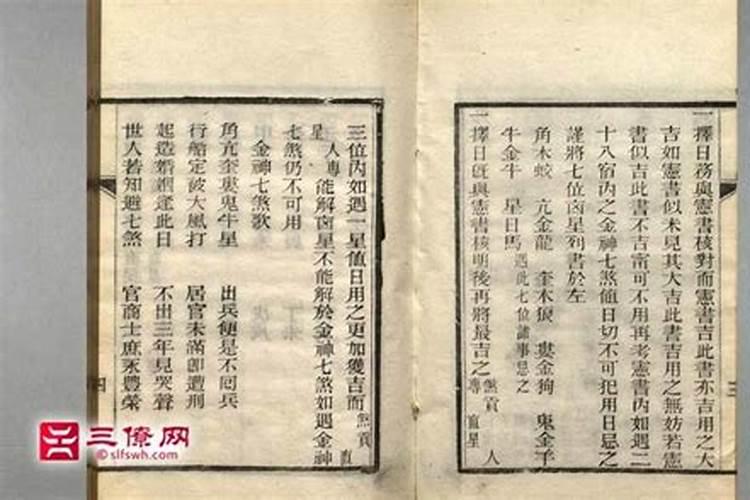 一擇日務與憲書核對而憲書吉此書亦吉用之大
吉如憲書似未見其大吉此書吉用之無妨若憲
書似吉此書不吉甯可不用再考憲書內如遇二
十八宿內之金神七煞值日切不可犯用日忌之
謹將七位凶星列書於左
角木蛟 亢金龍 奎木狼 婁金狗 鬼金羊
牛金牛 星日馬 遇此七位諸事忌之
一擇日旣與憲書核明後再將最吉之 煞貢 專 直星 人
三位內如遇一星值日用之更加獲吉而 煞貢 直
星 人專 能解凶星不能解於金神七煞如遇金神
七煞仍不可用
金神七煞歌
角亢奎婁鬼牛星 出兵便是不回兵
行船定被大風打 居官未滿即遭刑
起造婚姻逢此日 不出三年見哭聲
世人若知避七煞 官商士庶永豐榮
四
三
三僚网
©slfswh.com